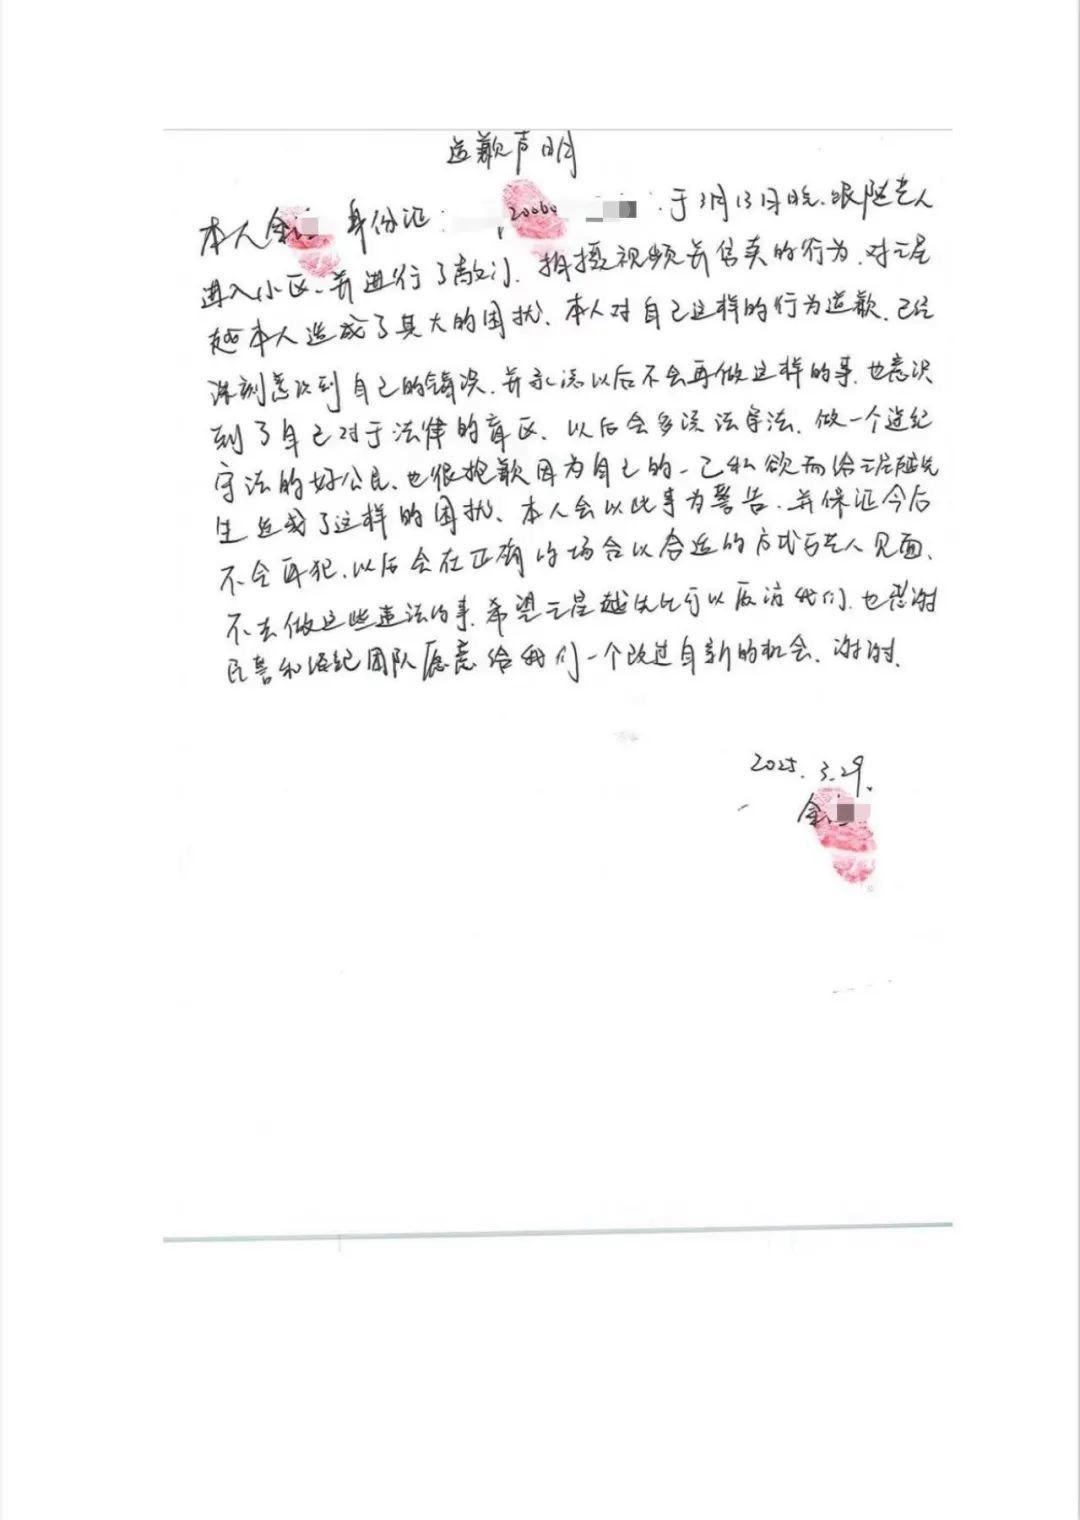 道歉声明
本人金 身份证: 20060 于3月13日晚.跟随艺人
进入小区.并进行了敲门.拍摄视频并售卖的行为.对王星
越本人造成了具大的困扰.本人对自己这样的行为道歉.已经
深刻意识到自己的错误.并永远以后不会再做这样的事.也意识
到了自己对于法律的盲区.以后会多读法守法.做一个遵纪
守法的好公民.也很抱歉因为自己的一己私欲而给王星越先
生造成了这样的困扰.本人会以此事为警告.并保证今后
不会再犯.以后会在正确的场合以合适的方式与艺人见面.
不去做这些违法的事.希望王星越先生可以原谅我们.也感谢
民警和经纪团队愿意给我们一个改过自新的机会.谢谢.
2025.3.29.
金